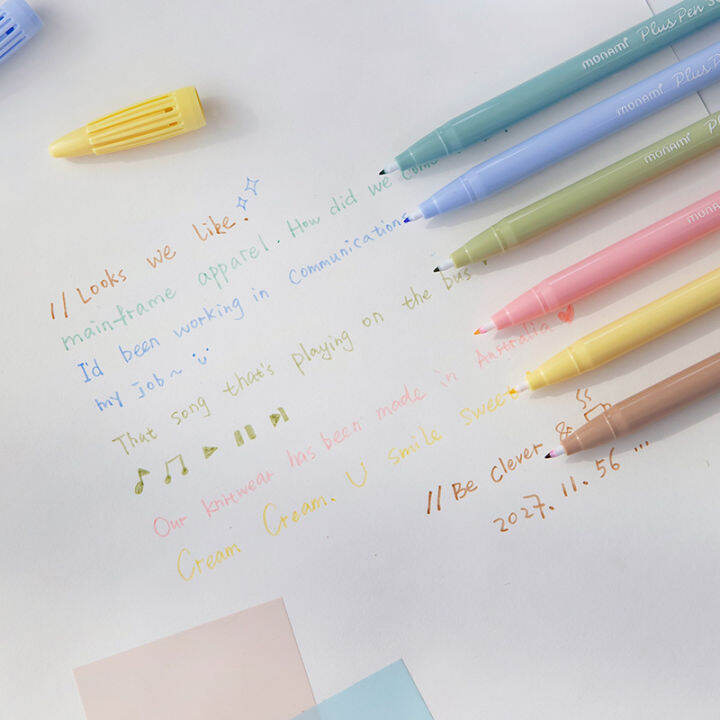 monami Plus Pen S
monami Plus Pe
monami Pl
mona
// Looks we like.
mainframe apparel. How did we come
I'd been working in communications
my job~
That song that's playing on the bus
Our knitwear has been made in Australia
Cream Cream. U smile sweet
// Be clever &
2027. 11. 56 ...